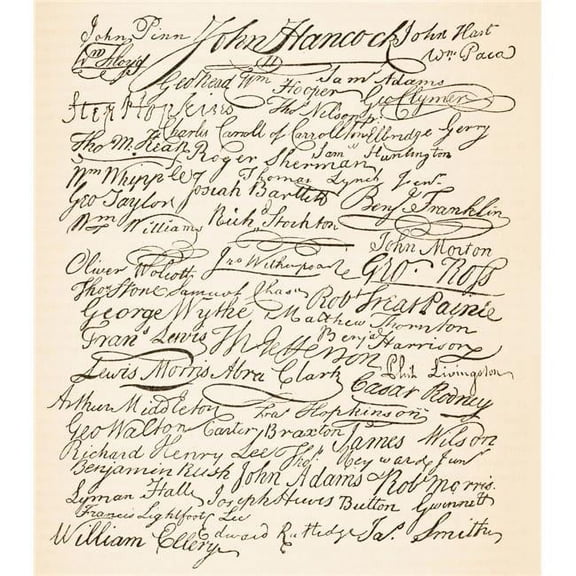 John Penn John Hancock John Hart
Wm Floyd Wm Paca
Geo Read Wm Hooper Saml Adams
Step Hopkins Thos Nelson jr Geo Clymer
Charles Carroll of Carrollton Elbridge Gerry
Tho M. Kean Roger Sherman Saml Huntington
Wm Whipple Thomas Lynch Junr.
Geo Taylon Josiah Bartlett Benj Franklin
Wm Williams Richd Stockton
John Morton
Oliver Wolcott Jno Witherspoon Geo. Ross
Thos Stone Samuel Chase Robt Treat Paine
George Wythe Matthew Thornton
Frans Lewis Th Jefferson Benja Harrison
Lewis Morris Abra Clark Phil. Livingston
Casar Rodney
Arthur Middleton Fras Hopkinson
Geo Walton Carter Braxton James Wilson
Richard Henry Lee Thos Heyward Junr
Benjamin Rush John Adams Robt Morris
Lyman Hall Joseph Hewes Button Gwinnett
Francis Lightfoot Lee
William Ellery Edward Rutledge Jas. Smith